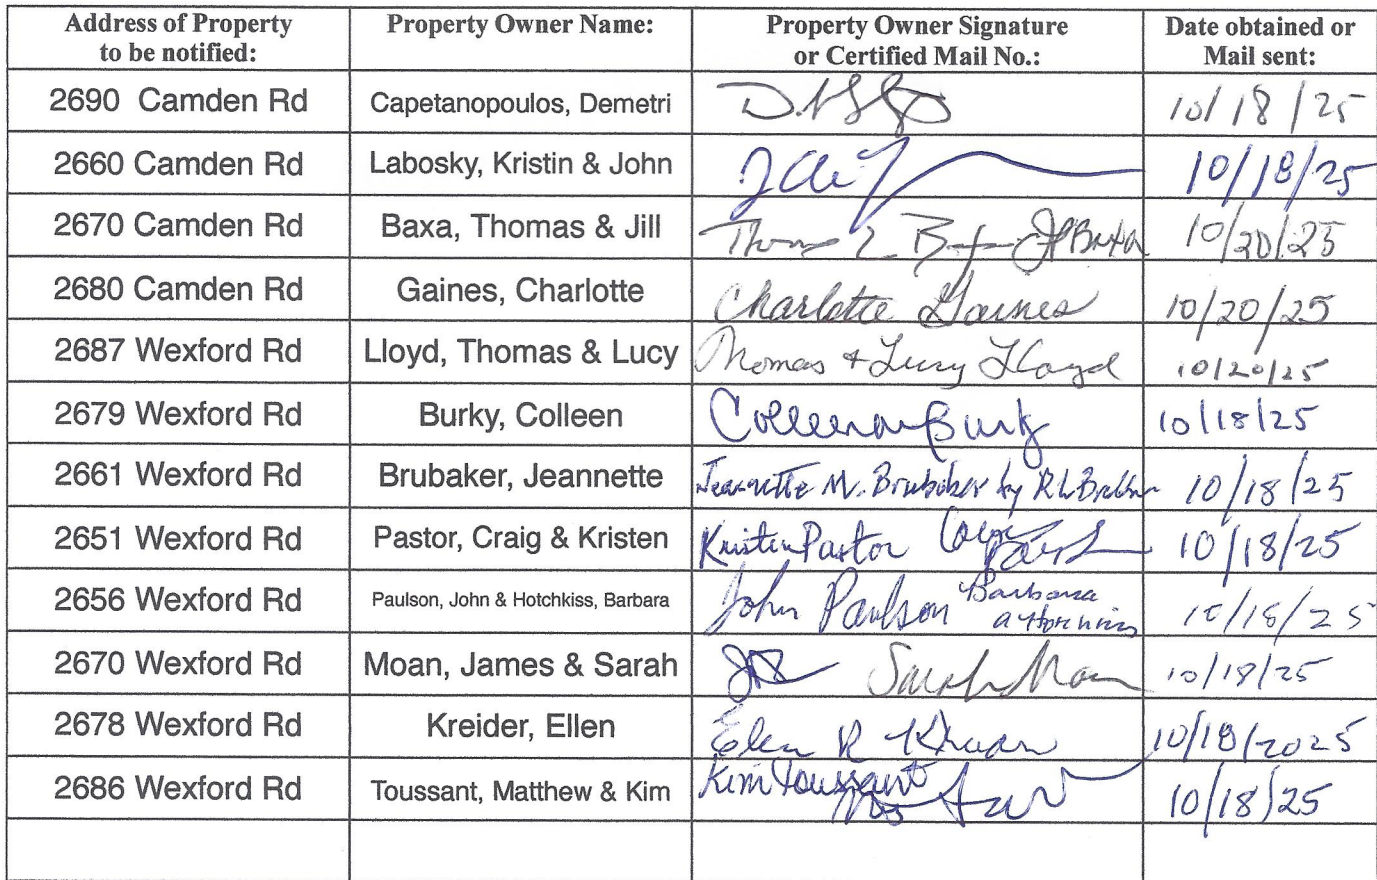 Address of Property Property Owner Name: Property Owner Signature Date obtained or
to be notified: or Certified Mail No.: Mail sent:
2690 Camden Rd Capetanopoulos, Demetri 10/18/25
2660 Camden Rd Labosky, Kristin & John 10/18/25
2670 Camden Rd Baxa, Thomas & Jill Thomas L. JPBaxa 10/20/25
2680 Camden Rd Gaines, Charlotte Charlotte Gaines 10/20/25
2687 Wexford Rd Lloyd, Thomas & Lucy Thomas + Lucy Lloyd 10/20/25
2679 Wexford Rd Burky, Colleen Colleen Burky 10/18/25
2661 Wexford Rd Brubaker, Jeannette Jeannette M. Brubaker by 10/18/25
2651 Wexford Rd Pastor, Craig & Kristen Kristen Pastor Craig 10/18/25
2656 Wexford Rd Paulson, John & Hotchkiss, Barbara John Paulson Barbara 10/18/25
2670 Wexford Rd Moan, James & Sarah Sarah Moan 10/18/25
2678 Wexford Rd Kreider, Ellen Ellen R 10/18/2025
2686 Wexford Rd Toussant, Matthew & Kim Kim Toussant 10/18/25